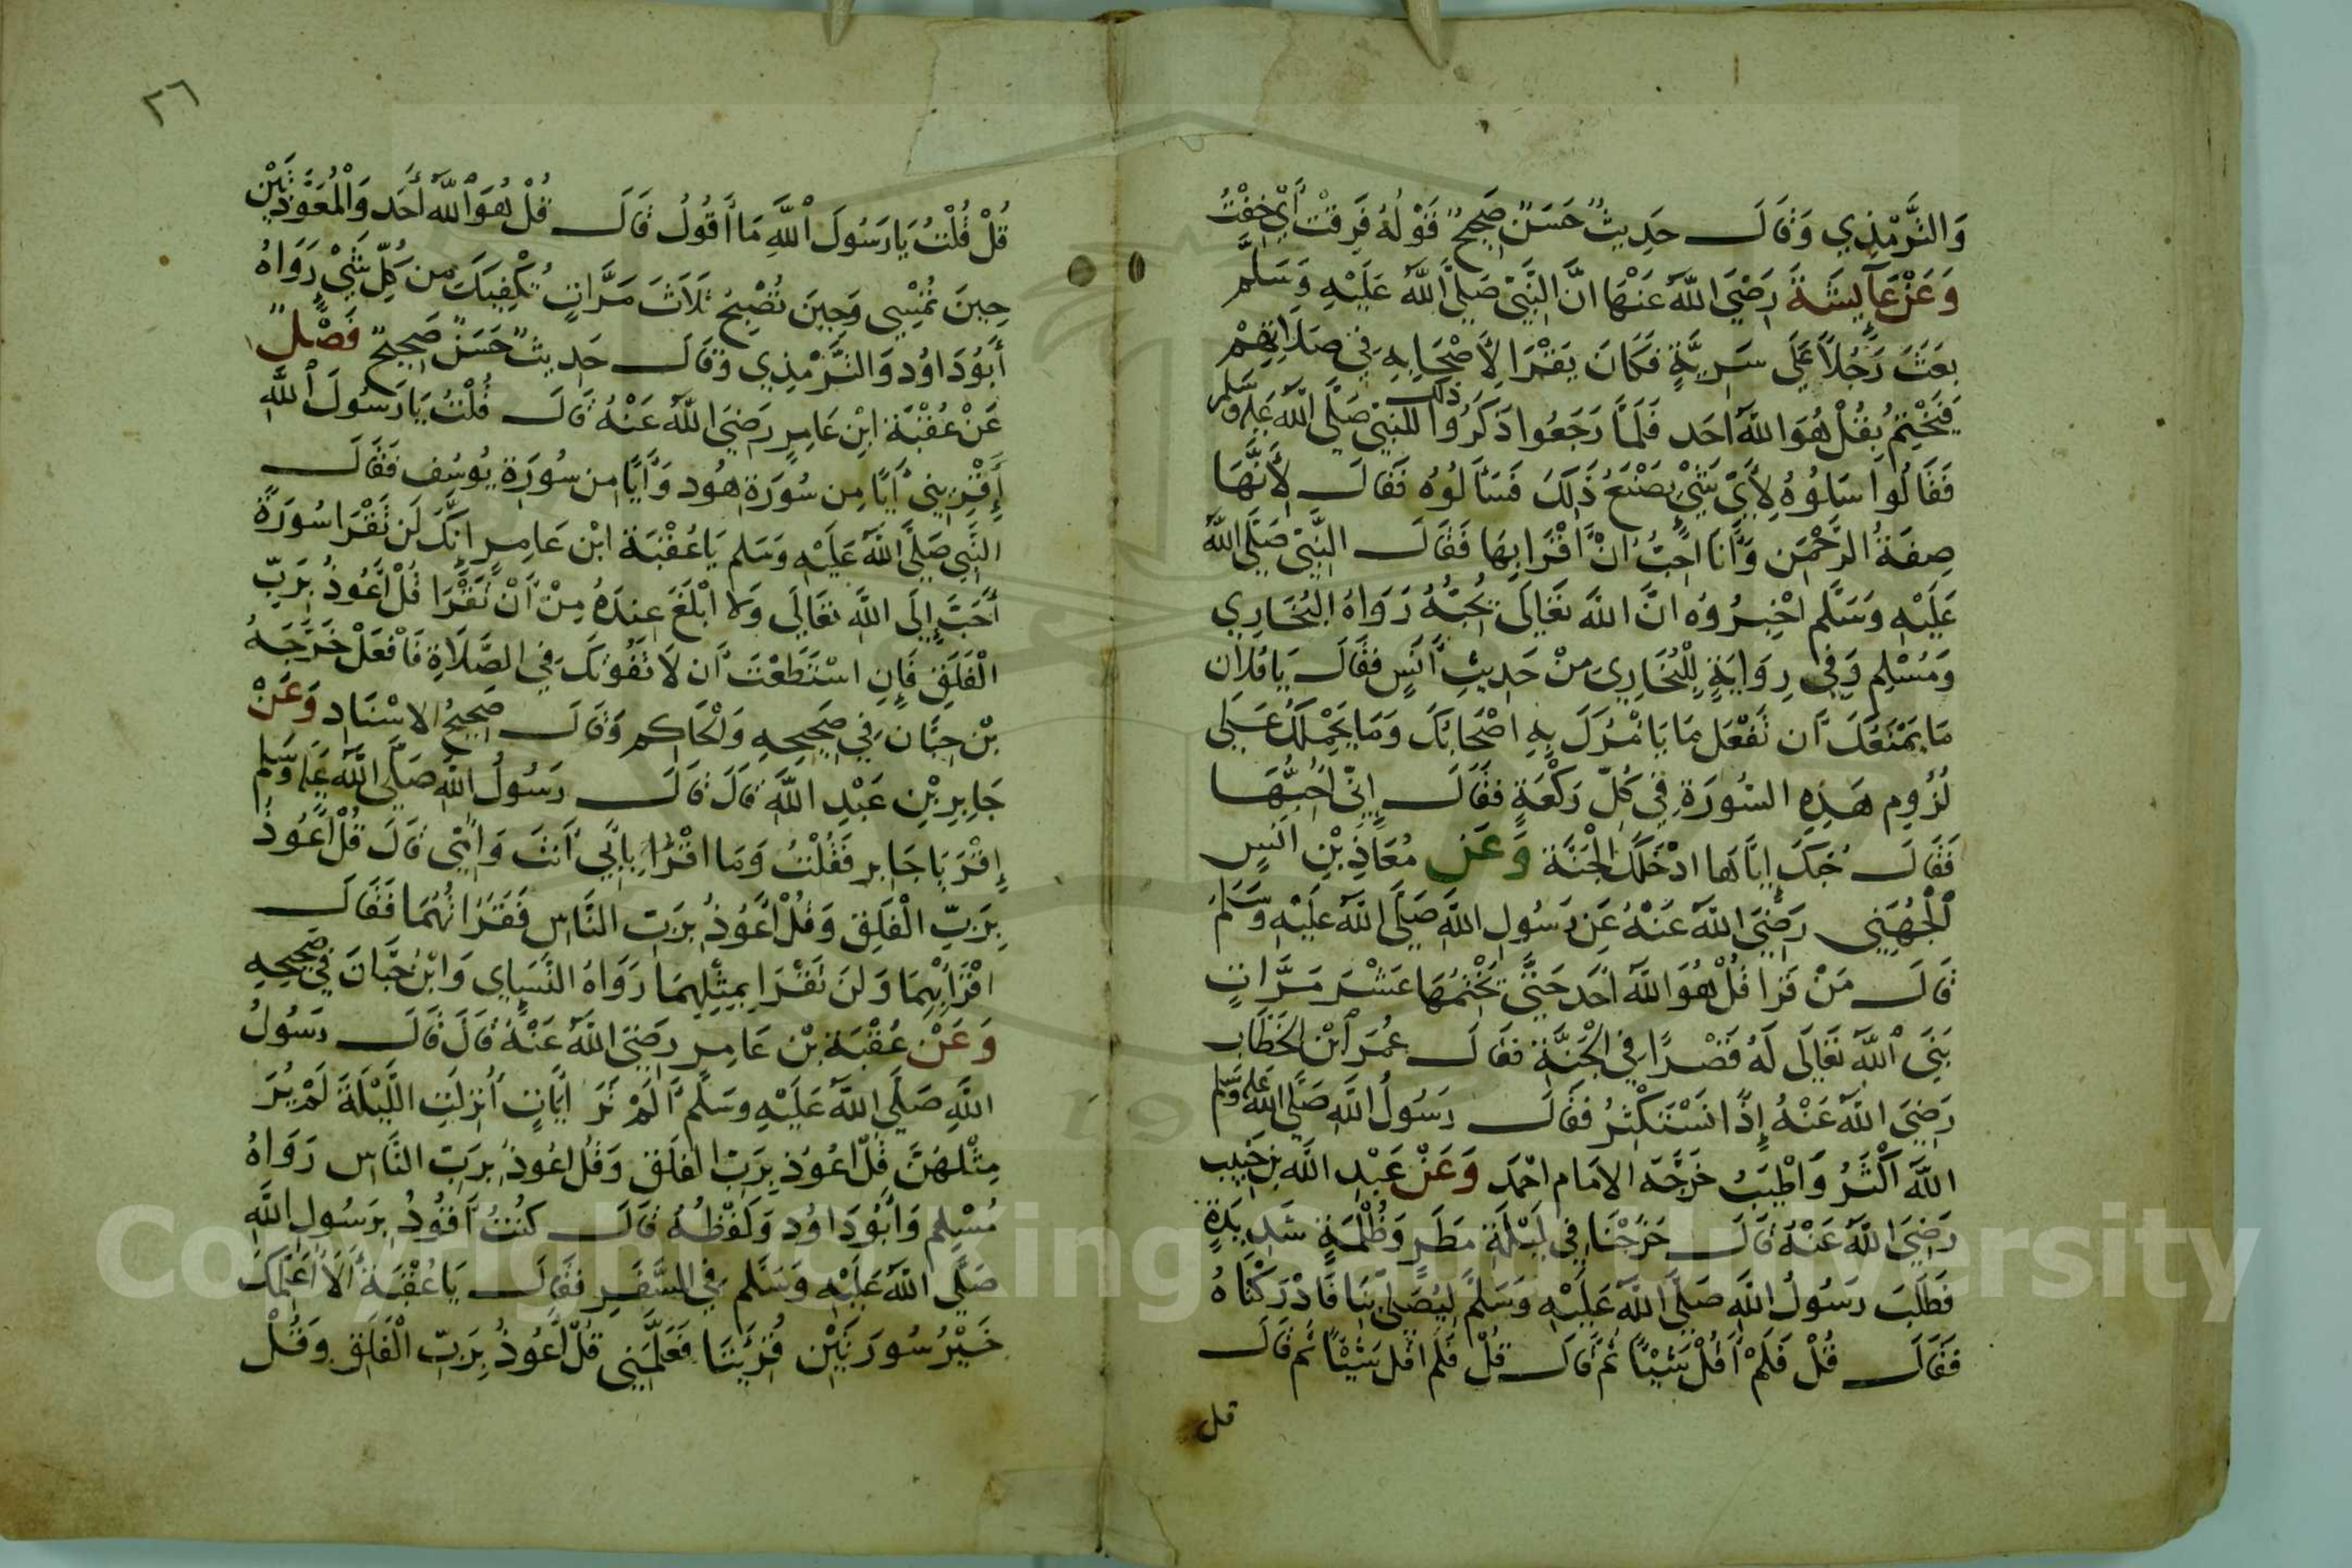 وَالتِّرْمِذِي وَقَالَ حَدِيثٌ حَسَنٌ صَحِيحٌ قَوْلُهُ فَرِقْتُ أَيْ خِفْتُ
وَعَنْ عَآيِشَةَ رَضِيَ اللَّهُ عَنْهَا انَّ النَّبِيَّ صَلَّى اللَّهُ عَلَيْهِ وَسَلَّمَ
بَعَثَ رَجُلاً عَلَى سَرِيَّةٍ فَكَانَ يَقْرَا لِأَصْحَابِهِ فِي صَلَاتِهِمْ
فَيَخْتِمُ بِقُلْ هُوَ اللَّهُ احَد فَلَمَّا رَجَعُوا ذَكَرُوا ذلك لِلنَّبِيِّ صَلَّى اللَّهُ عَلَيْهِ وَسَلَّمَ
فَقَالُوا سَلُوُهُ لِأَيِّ شَيْءٍ يَصْنَعُ ذَلِكَ فَسَأَلُوُهُ فَقَالَ لِأَنَّهَا
صِفَةُ الرَّحْمَنِ وَأَنَا احِبُّ انْ أَقْرَا بِهَا فَقَالَ النَّبِيُّ صَلَّى اللَّهُ
عَلَيْهِ وَسَلَّم اخْبِرُوُه انَّ اللَّهَ تَعَالَى يُحِبُّهُ رَوَاهُ البُخَارِي
وَمُسْلِم وَفِي رِوَايَةٍ لِلْبُخَارِي مِنْ حَدِيثِ أَنَسٍ فَقَالَ يَا فُلَان
مَا يَمْنَعُكَ أَن تَفْعَل مَا يَأْمُرُكَ بِهِ اصْحَابُكَ وَمَا يَحْمِلُكَ عَلَى
لُزُومِ هَذِهِ السُّورَةِ فِي كُلِّ رَكْعَةٍ فَقَالَ إِنِّي احُبُّهَا
فَقَالَ حُبكَ إِيَّاهَا ادْخَلَكَ الْجَنَّة وَعَن مُعَاذِ بْنِ انَسٍ
الْجُهَنِي رَضِيَ اللَّهُ عَنْهُ عَن رَسُولِ اللَّهِ صَلَّى اللَّهُ عَلَيْهِ وَسَلَّم
قَالَ مَنْ قَرَا قُلْ هُوَ اللَّهُ احَد حَتَّى يَخْتِمُهَا عَشْرَ مَرَّاتٍ
بَنَى اللَّهُ تَعَالَى لَهُ قَصْرًا فِي الْجَنَّةِ فَقَالَ عُمَرَ ابْنِ الْخَطَّابِ
رَضِيَ اللَّهُ عَنْهُ إِذًا نَسْتَكْثِرُ فَقَالَ رَسُولُ اللَّهِ صَلَّى اللَّهُ عَلَيْهِ وَسَلَّم
اللَّهُ أَكْثَرُ وَأَطْيَبُ خَرَّجَهُ الامَام احْمَد وَعَنْ عَبْدِ اللَّه بن خُبَيب
رَضِيَ اللَّهُ عَنْهُ قَالَ خَرَجْنَا فِي لَيْلَةِ مَطَرٍ وَظُلْمَةٍ شَدِيدَةٍ
فَطَلَبَ رَسُولُ اللَّهِ صَلَّى اللَّهُ عَلَيْهِ وَسَلَّم لِيُصَلِّي بِنَا فَادْرَكْنَاهُ
فَقَالَ قُلْ فَلَمْ أَقُلْ شَيْئًا ثُمَّ قَالَ قُلْ فَلَم اقُل شَيْئًا ثُم قَالَ
قل
٢٦
قُلْ قُلْتُ يَا رَسُولَ اللَّهِ مَا أَقُولُ قَالَ قُلْ هُوَ اللَّهُ أَحَد وَالْمُعَوِّذَتَيْنِ
حِينَ تُمْسِي وَحِينَ تُصْبِحُ ثَلَاثَ مَرَّاتٍ تَكْفِيكَ مِن كُلِّ شَيْءٍ رَوَاهُ
أَبُو دَاوُد وَالتِّرْمِذِي وَقَالَ حَدِيثٌ حَسَنٌ صَحِيحٌ فَصْلٌ
عَنْ عُقْبَة ابْنِ عَامِرٍ رَضِيَ اللَّهُ عَنْهُ قَالَ قُلْتُ يَا رَسُولَ اللَّهِ
أَقْرِيني أَيًا مِن سُورَةِ هُود وَأَيًا مِن سُورَةِ يُوسُف فَقَالَ
النَّبِي صَلَّى اللَّهُ عَلَيْهِ وَسَلم يَا عُقْبَة ابْن عَامِرٍ إِنَّكَ لَن تَقْرَا سُورَةً
أَحَبَّ إِلَى اللَّهِ تَعَالَى وَلا ابْلَغَ عِندَهُ مِنْ أَنْ تَقْرَا قُلْ أَعُوذُ بِرَبِّ
الْفَلَقِ فَإِنِ اسْتَطَعْتَ أَن لَا تَفُوتَكَ فِي الصَّلَاةِ فَافْعَلْ خَرَّجَهُ
بْن حِبَّان فِي صَحِيحِهِ وَالْحَاكِم وَقَالَ صَحِيحُ الاسْنَادِ وَعَنْ
جَابِرِ بْنِ عَبْدِ اللَّهِ قَالَ قَالَ رَسُولُ اللَّهِ صَلَّى اللَّهُ عَلَيْهِ وَسَلَّم
إِقْرَ يَا جَابِر فَقُلْتُ وَمَا اقْرَأُ بِأَبِي أَنتَ وَأُمِّي قَالَ قُلْ أَعُوذُ
بِرَبِّ الْفَلَقِ وَقُلْ أَعُوذُ بِرَبِّ النَّاسِ فَقَرَأتُهُمَا فَقَالَ
اقْرَأْبِهِمَا وَلَن تَقْرَا بِمِثْلِهِمَا رَوَاهُ النَّسَاي وَابْنُ حِبَّانَ فِي صَحِيحِهِ
وَعَنْ عُقْبَة بْن عَامِرٍ رَضِيَ اللَّهُ عَنْهُ قَالَ قَالَ رَسُولُ
اللَّهِ صَلَّى اللَّهُ عَلَيْهِ وَسَلَّم أَلَمْ تَرَ ايَاتٍ أُنزِلَتِ اللَّيْلَةَ لَمْ يُرَ
مِثْلهُنَّ قُلْ اعُوذ بِرَبِّ الفَلَقِ وَقُل اعُوذُ بِرَبِّ النَّاسِ رَوَاهُ
مُسْلِم وَأَبُو دَاوُد وَلَفْظُهُ قَالَ كُنتُ أَقُودُ بِرَسُولِ اللَّهِ
صَلَّى اللَّهُ عَلَيْهِ وَسَلَّم فِي السَّفَرِ فَقَالَ يَا عُقْبَةُ أَلَا أُعَلِّمُكَ
خَيْرُ سُورَتَيْنِ قُرِئَتَا فَعَلَّمَنِي قُلْ أَعُوذُ بِرَبِّ الْفَلَقِ وَقُلْ
Copyright © King Saud University